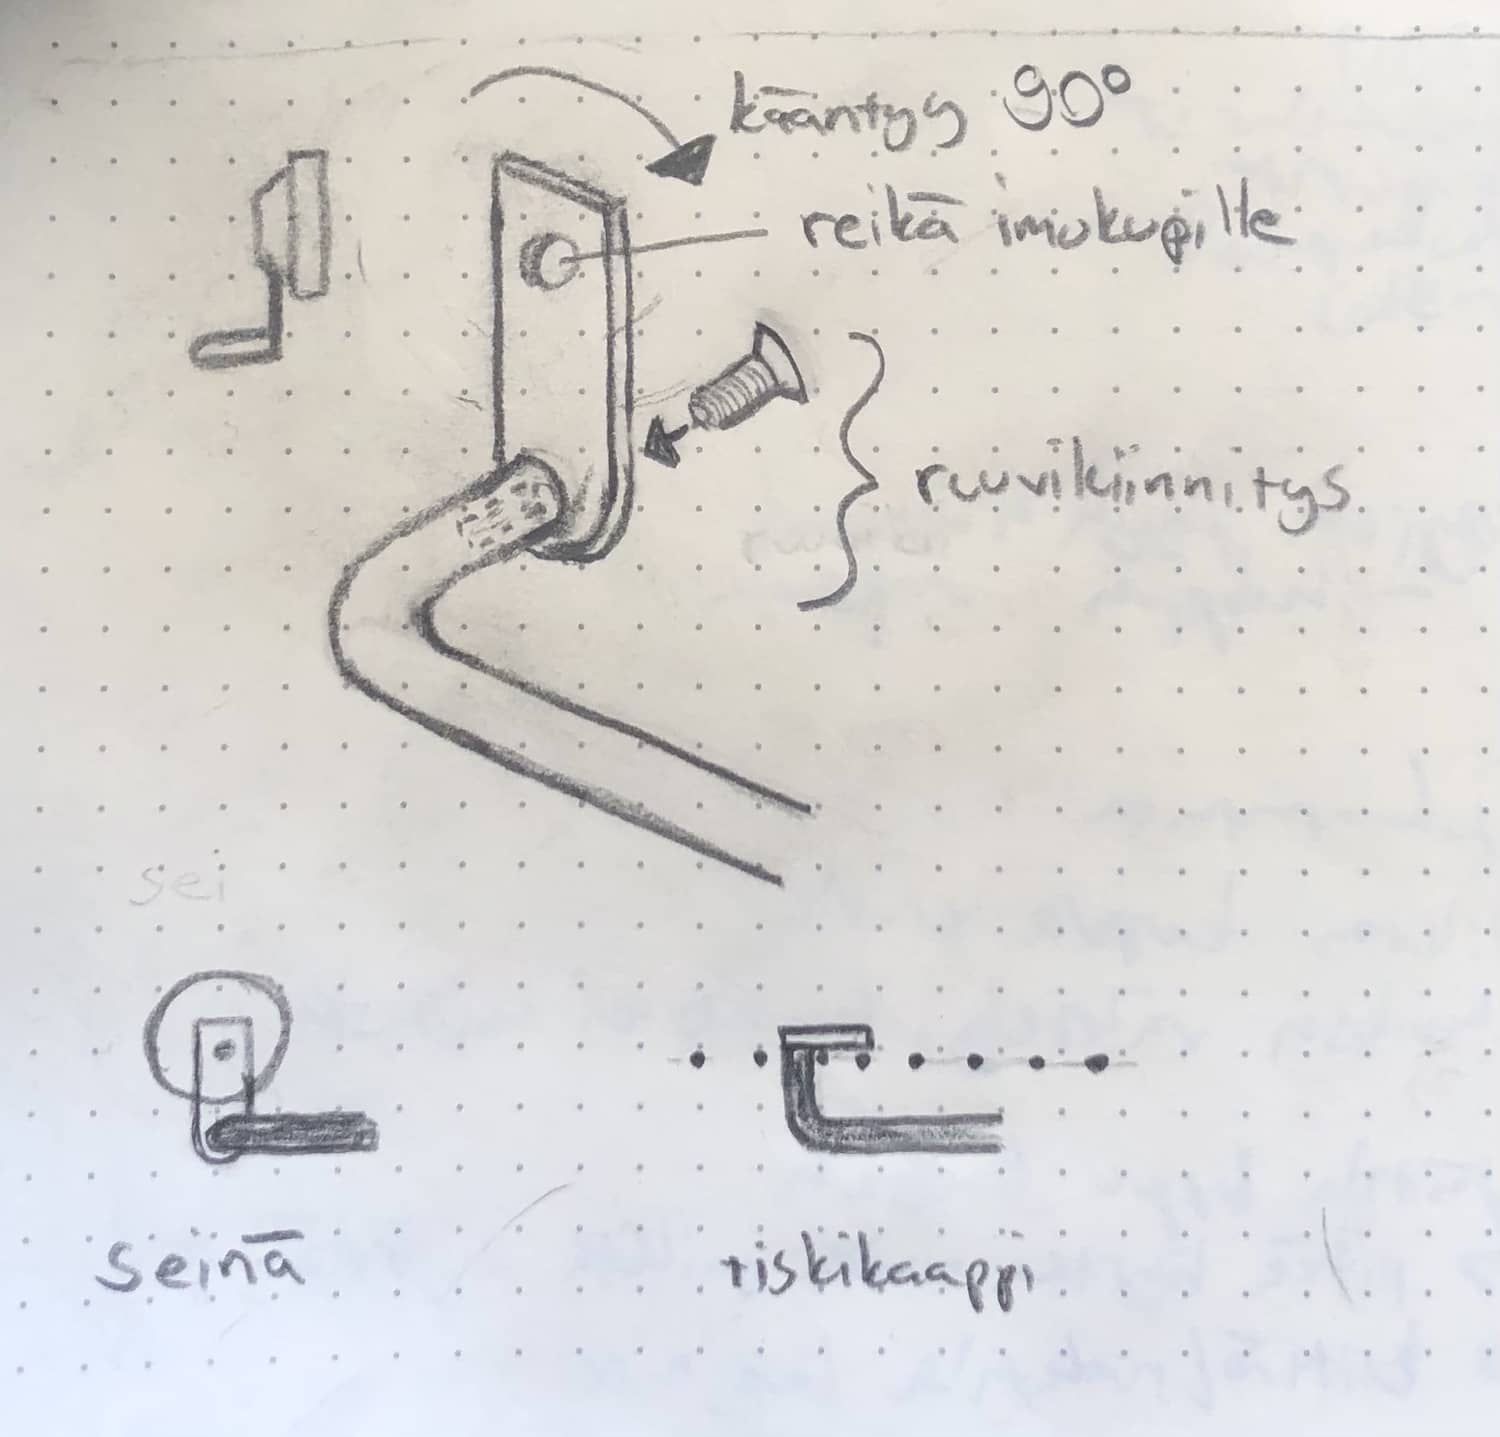 kääntyy 90°
reikä imukupille
ruuvikiinnitys
sei
seinä
tiskikaappi